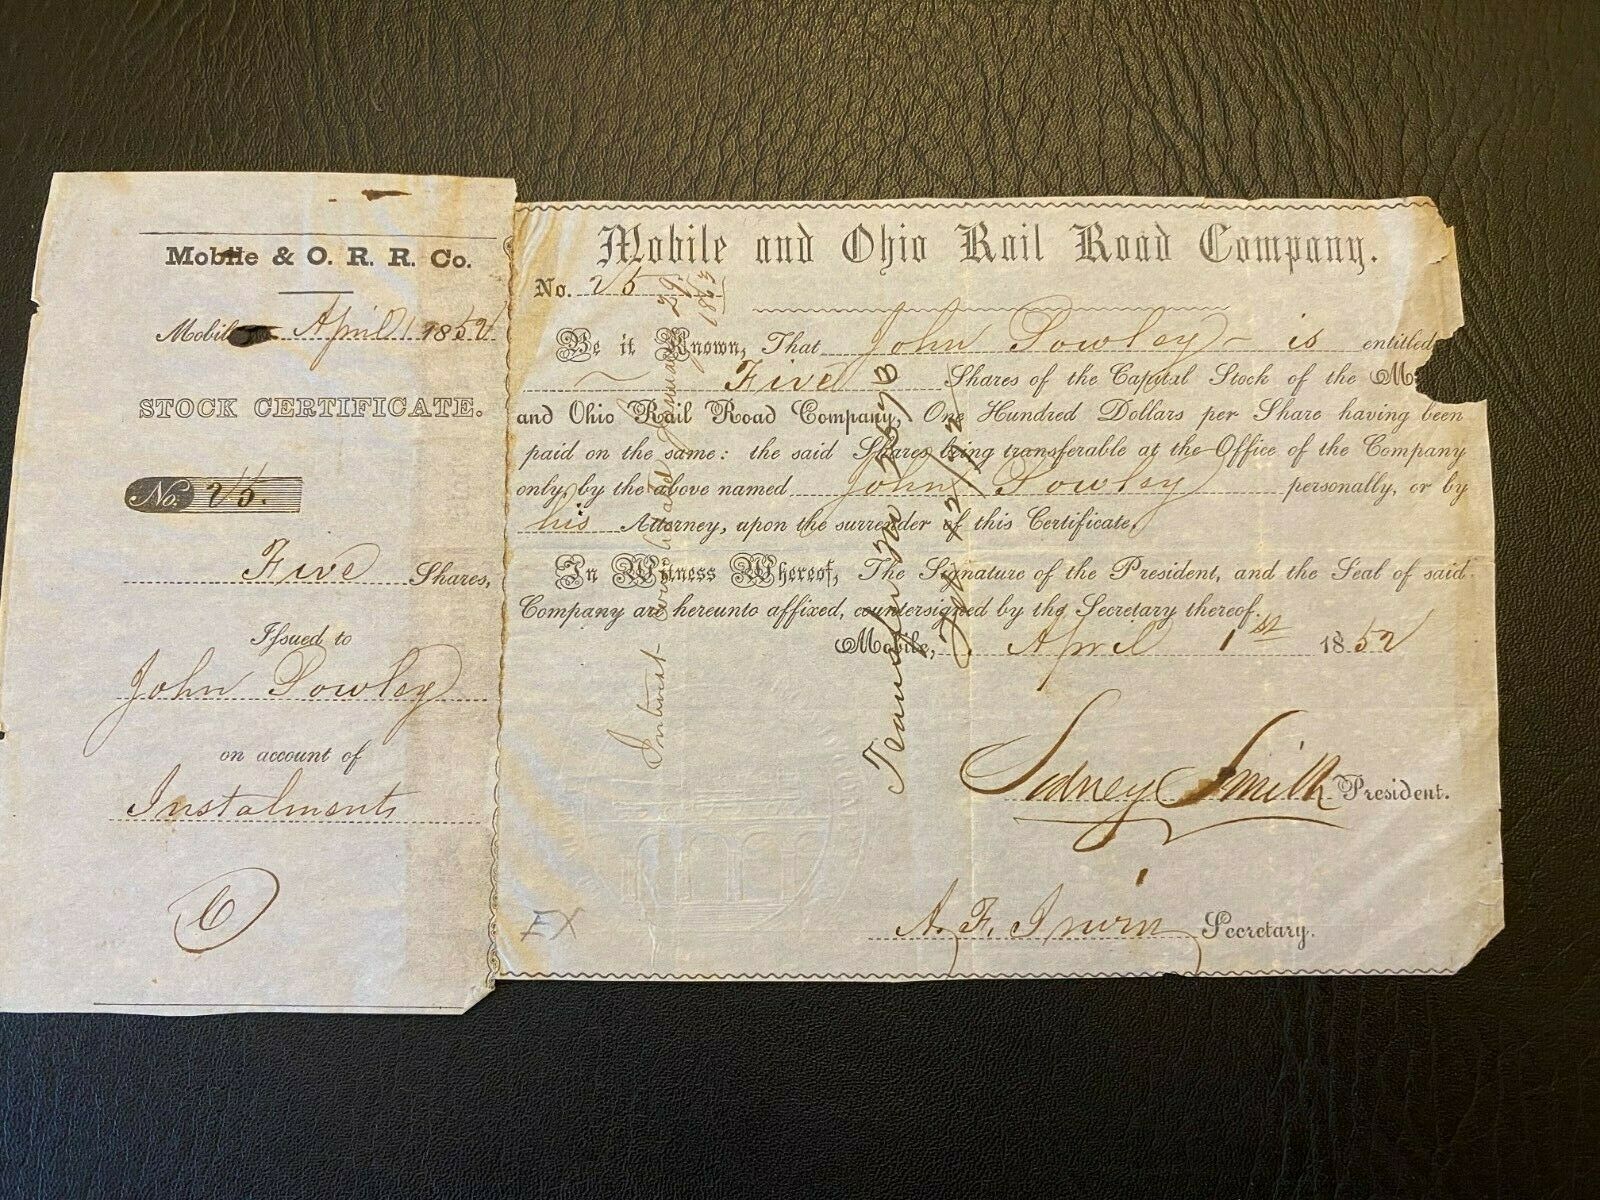 Mobile & O. R. R. Co.
Mobile April 1 1852
STOCK CERTIFICATE.
No. 25.
Five Shares,
Issued to
John Powley
on account of
Instalments
Mobile and Ohio Rail Road Company.
No. 25
Be it Known, That John Powley is entitled
Five Shares of the Capital Stock of the M
and Ohio Rail Road Company, One Hundred Dollars per Share having been
paid on the same: the said Shares being transferable at the Office of the Company
only, by the above named John Powley personally, or by
his Attorney, upon the surrender of this Certificate.
In Witness Whereof, The Signature of the President, and the Seal of said
Company are hereunto affixed, countersigned by the Secretary thereof.
Mobile, April 1st 1852
Sidney Smith President.
A. F. Irwin Secretary.
EX
Interest January 29 1863